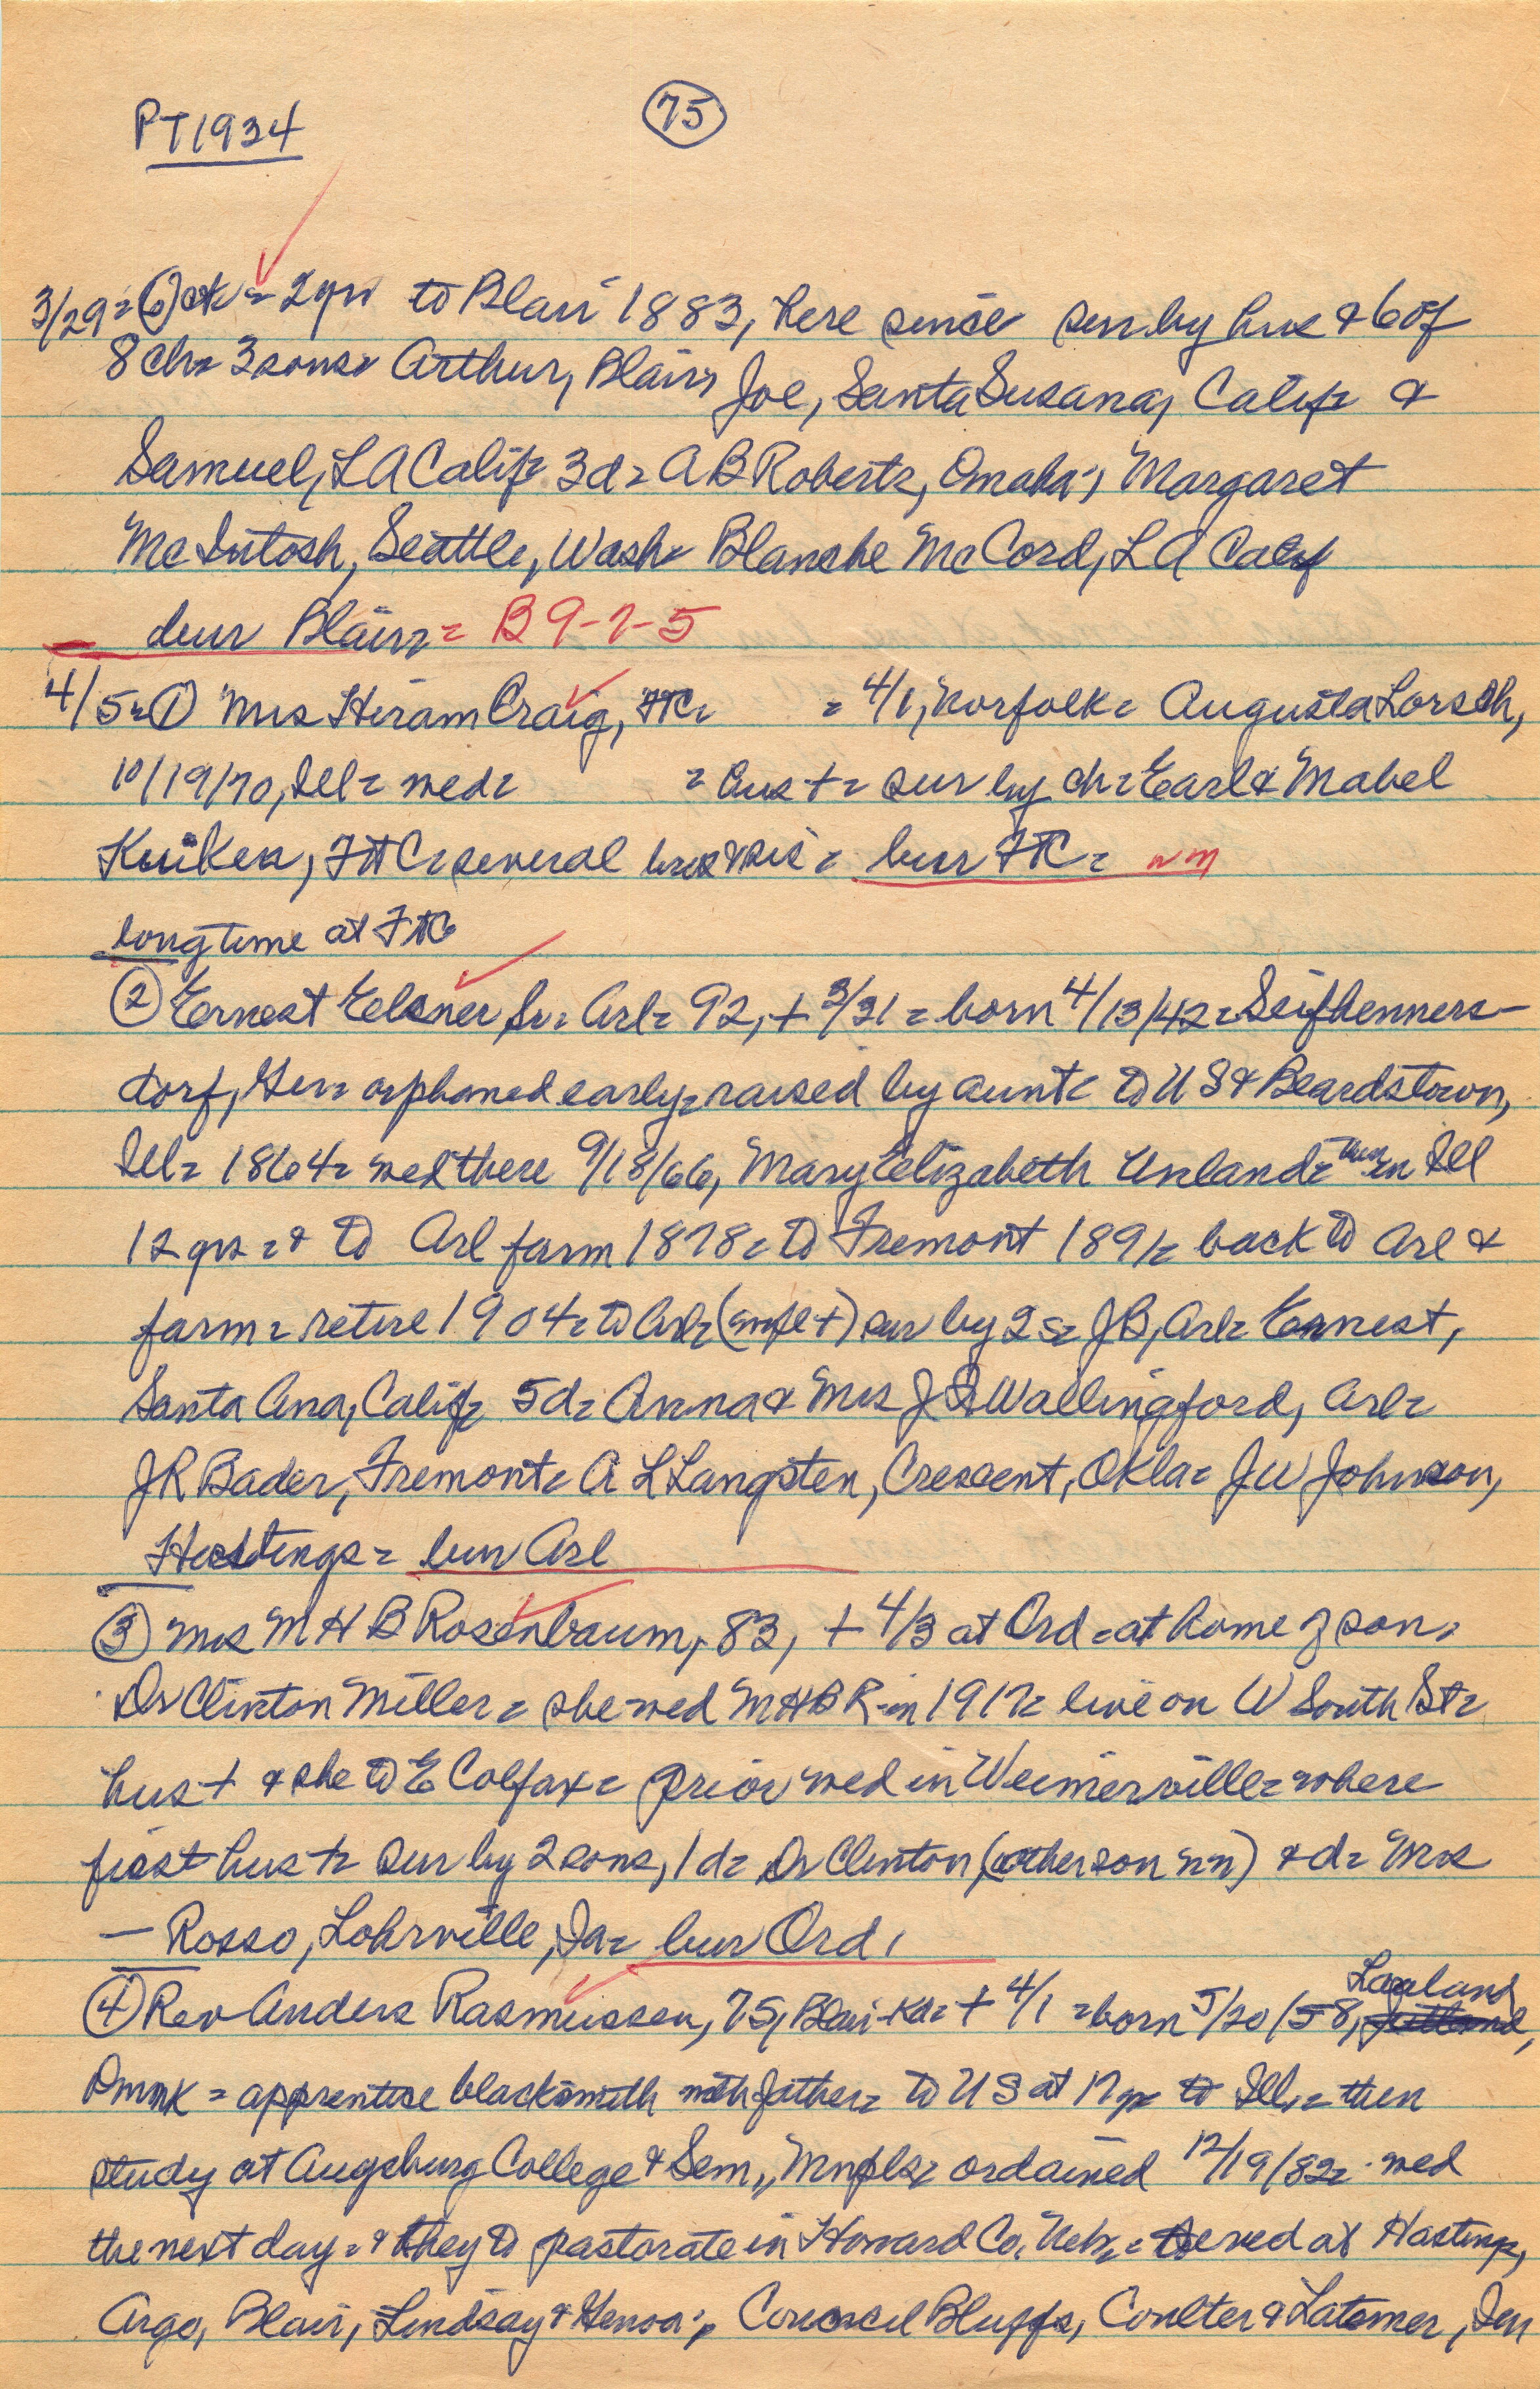 PT1934
75
3/29 = 6) ok = 2 yrs to Blair 1883, here since sur by hus & 6 of
8 ch = 3 sons = Arthur, Blair, Joe, Santa Susana, Calif = &
Samuel, LA Calif = 3d = A B Roberts, Omaha; Margaret
McIntosh, Seattle, Wash = Blanche McCord, LA Calif
bur Blair = B 9-7-5
4/5 = 1 Mrs Hiram Craig, FTC = = 4/1, Norfolk = Augusta Lorsch,
10/19/70, Ill = wed = = hus + = sur by ch = Earl & Mabel
Kuiken, FTC = several bros & sis = bur FTC = nn
longtime at FTC
2 Ernest Elsner, Sr = Arl = 92, + 3/31 = born 4/13/42 = Seifhenners-
dorf, Ger = orphaned early = raised by aunt = to US & Beardstown,
Ill = 1864 = wed there 9/18/66, Mary Elizabeth Unland = then in Ill
12 yrs = & to Arl farm 1878 = to Fremont 1891 = back to Arl &
farm = retire 1904 = to Arl = (wife +) sur by 2 s = JB, Arl = Ernest,
Santa Ana, Calif = 5d = Anna & Mrs J Wallingford, Arl =
J R Bader, Fremont = A L Langsten, Crescent, Okla = J W Johnson,
Hastings = bur Arl
3 Mrs M H B Rosenbaum, 83, + 4/3 at Ord = at home of son,
Dr Clinton Miller = she wed MHBR in 1917 = live on W South St =
hus + & she to E Colfax = prior wed in Weimerville = where
first hus + = sur by 2 sons, 1 d = Dr Clinton, (other son nn) & d = Mrs
— Rosso, Lohrville, Ia = bur Ord,
4 Rev Anders Rasmussen, 75, Blair - = + 4/1 = born 5/20/58, Laaland, Jutland,
Dnmk = apprentice blacksmith with father = to US at 17 yr = to Ill, = then
study at Augsburg College & Sem, Mnpls = ordained 12/19/82 = wed
the next day = & they to pastorate in Howard Co, Neb = served at Hastings,
Argo, Blair, Lindsay & Genoa; Council Bluffs, Coulter & Latimer,